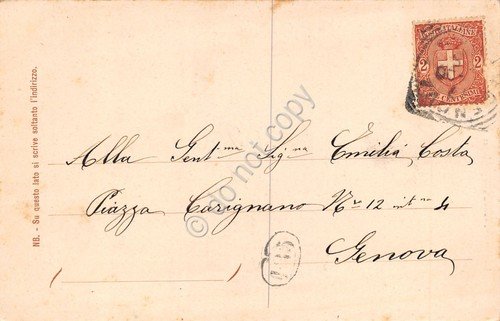 NB. - Su questo lato si scrive soltanto l'indirizzo.
2 2
CENTESIMI
Alla Gent.ma Sig.na Emilia Costa
Piazza Carignano No 12 int no 4
Genova
do not copy